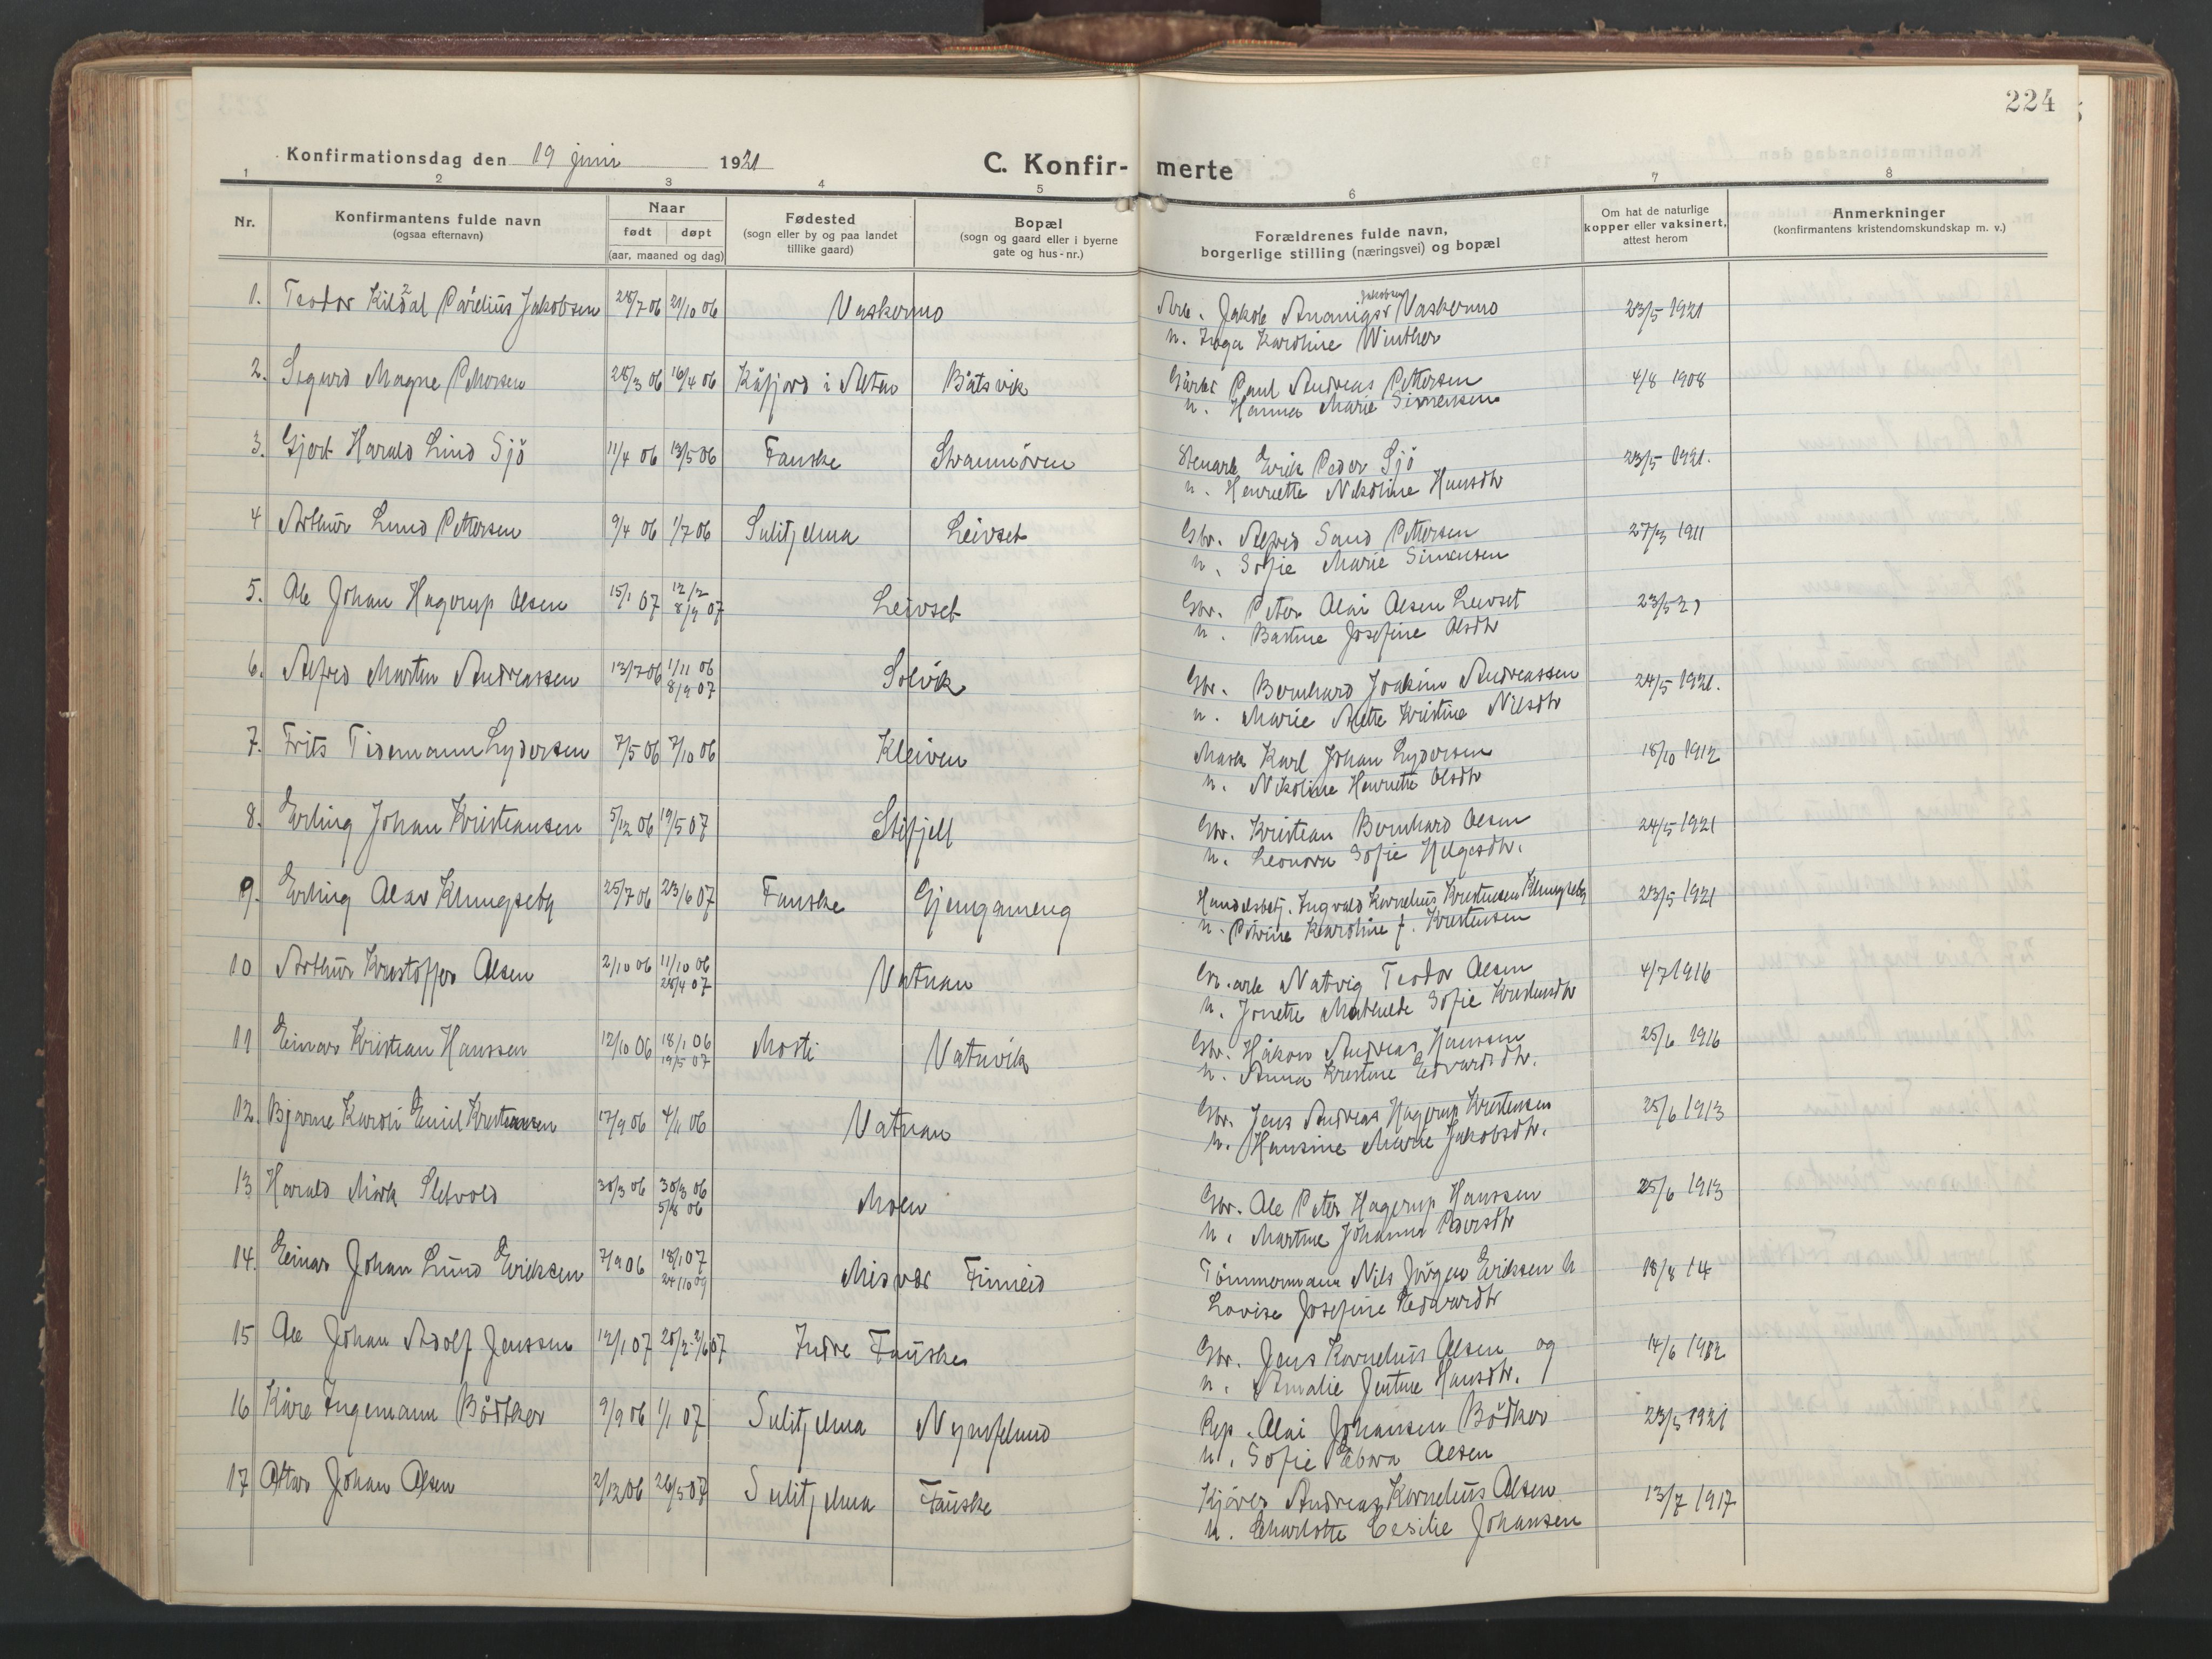 224
Konfirmationsdag den 19 juni 1921
C. Konfir- merte
1 2 3 4 5 6 7 8
Nr.
Konfirmantens fulde navn
(ogsaa efternavn)
Naar
født døpt
(aar, maaned og dag)
Fødested
(sogn eller by og paa landet
tillike gaard)
Bopæl
(sogn og gaard eller i byerne
gate og hus-nr.)
Forældrenes fulde navn,
borgerlige stilling (næringsvei) og bopæl
Om hat de naturlige
kopper eller vaksinert,
attest herom
Anmerkninger
(konfirmantens kristendomskundskap m. v.)
1. Teodor Kildal Parelius Jakobsen 28/7 06 21/10 06 Vaskermo Arb. Jakob Ananias Jakobsen Vaskermo 23/5 1921
u. Inga Karoline Winther
2. Sigurd Magne Pettersen 28/3 06 16/4 06 Kåfjord i Alten Båtsvik Gårbr Paul Andreas Pettersen 4/8 1908
u. Hanna Marie Simensen
3. Gjert Harald Lind Sjö 11/4 06 13/5 06 Fauske Stranmören Stenarb Erik Peder Sjö 23/5 1921.
u. Henriette Nikoline Hansdtr
4 Arthur Lund Pettersen 9/4 06 1/7 06 Sulitjelma Leivset Gbr. Alfred Sand Pettersen 27/3 1911
u. Sofie Marie Simensen
5. Ole Johan Hagerup Olsen 15/1 07 12/2 8/9 07 Leivset Gbr. Peter Olai Olsen Leivset 23/5 21
u. Bastine Josefine Olsdtr
6. Alfred Martin Andreassen 13/7 06 1/11 06 8/9 07 Solvik Gbr. Bernhard Joakim Andreassen 24/5 1921.
u. Marie Anette Kristine Nilsdtr
7. Frits Tidemann Lydersen 7/5 06 7/10 06 Kleiven Mask Karl Johan Lydersen 18/10 1912
u. Nikoline Henriette Olsdtr
8. Erling Johan Kristiansen 5/12 06 19/5 07 Stifjell Gbr. Kristian Bernhard Olsen 24/5 1921
u. Leonora Sofie Helgesdtr.
9. Erling Olav Klungseby 25/7 06 23/6 07 Fauske Gjengameng Handelsbetj. Ingvald Kornelius Kristensen Klungseby 23/5 1921
u. Petrine Karoline f. Kristensen
10 Arthur Kristoffer Olsen 2/10 06 11/10 06 28/4 07 Vatnan Gr. arb Natvig Teodor Olsen 4/7 1916
u. Jonette Mathilde Sofie Kristensdtr
11 Einar Kristian Hanssen 12/10 06 18/1 06 19/5 07 Mosti Vatnvik Gbr. Håkon Andreas Hanssen 25/6 1916
u. Anna Kristine Edvardsdtr.
12. Bjarne Karoli Emil Kristensen 17/9 06 4/11 06 Vatnan Gbr. Jens Andreas Hagerup Kristensen 25/6 1913
u. Hansine Marie Jakobsdtr.
13 Harald Mörk Sletvold 30/3 06 30/3 06 5/8 06 Moen Gbr. Ole Peter Hagerup Hanssen 25/6 1913
u. Martine Johanna Pedersdtr
14. Einar Johan Lund Eriksen 7/9 06 18/1 07 24/10 09 Misvær Finneid Tömmermann Nils Jörgen Eriksen u 18/8 14
Lovise Josefine Edvardtr
15 Ole Johan Adolf Jenssen 12/1 07 20/2 - 2/6 07 Indre Fauske Gbr. Jens Kornelius Olsen og 14/6 1912
u. Amalie Jentine Hansdtr.
16 Kåre Ingemann Bödtker 9/9 06 1/1 07 Sulitjelma Nymfelund Rep. Olai Johansen Bödker 23/5 1921
u. Sofie Ebera Olsen
17 Ottar Johan Olsen 2/12 06 26/5 07 Sulitjelma Fauske Kjörer Andreas Kornelius Olsen 13/7 1917
u. Charlotte Cesilie Johansen